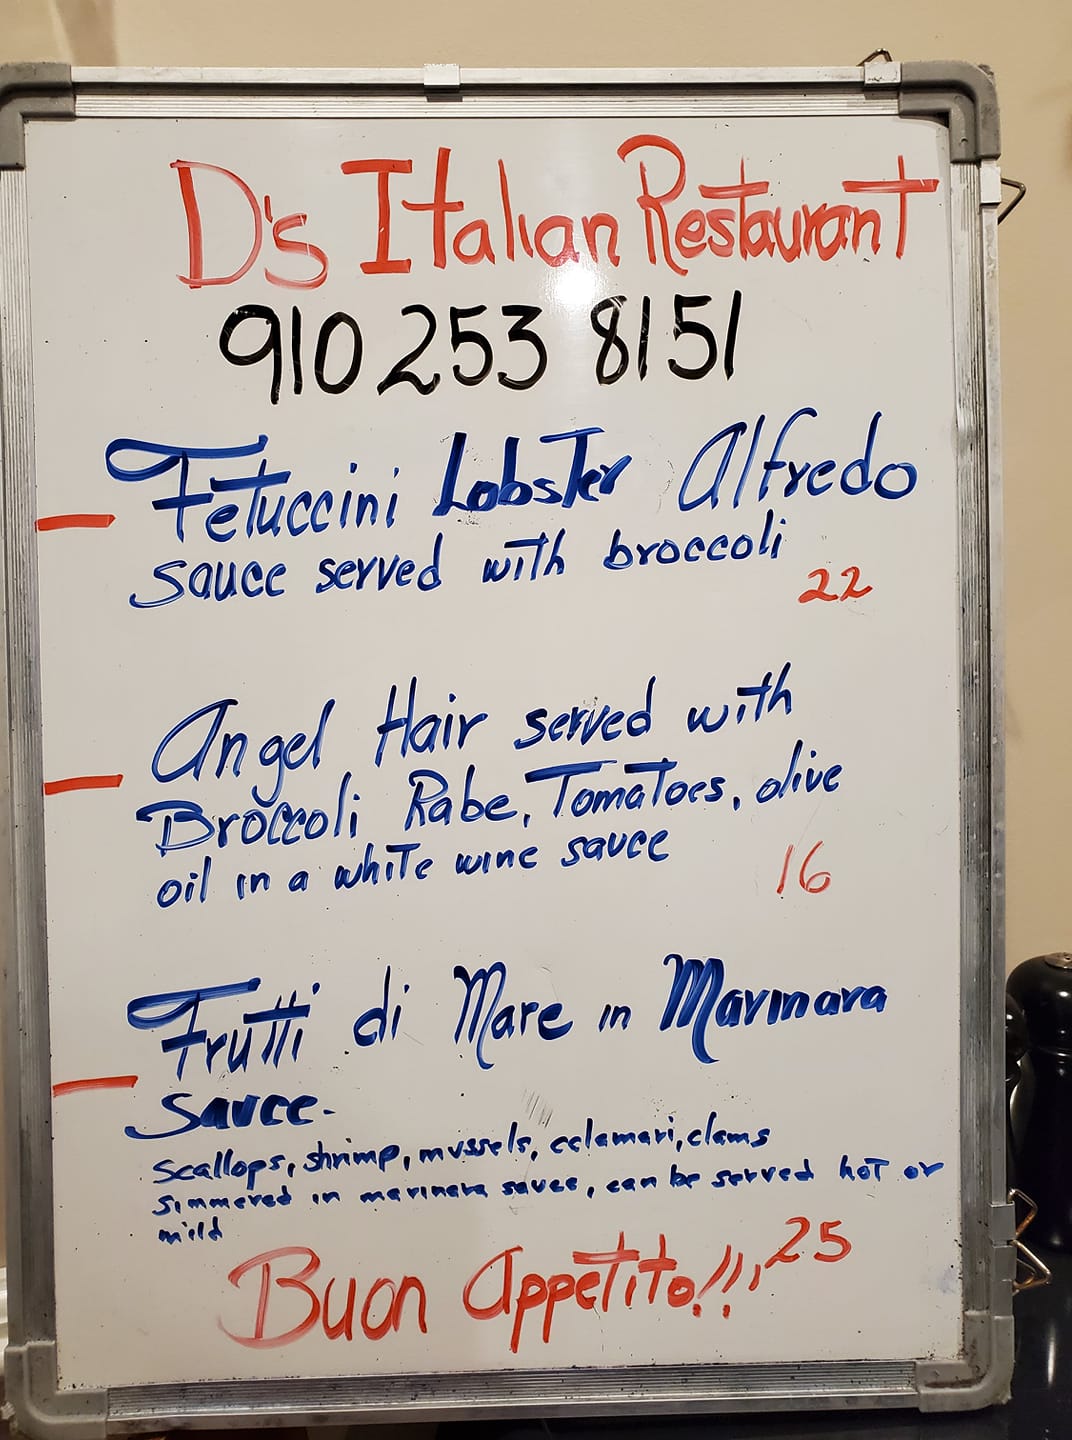 D's Italian Restaurant
910 253 8151
Fetuccini Lobster Alfredo
sauce served with broccoli
22
Angel Hair served with
Broccoli Rabe, Tomatoes, olive
oil in a white wine sauce
16
Frutti di Mare in Marinara
Sauce.
Scallops, shrimp, mussels, calamari, clams
simmered in marinara sauce, can be served hot or
mild
25
Buon Appetito!!!